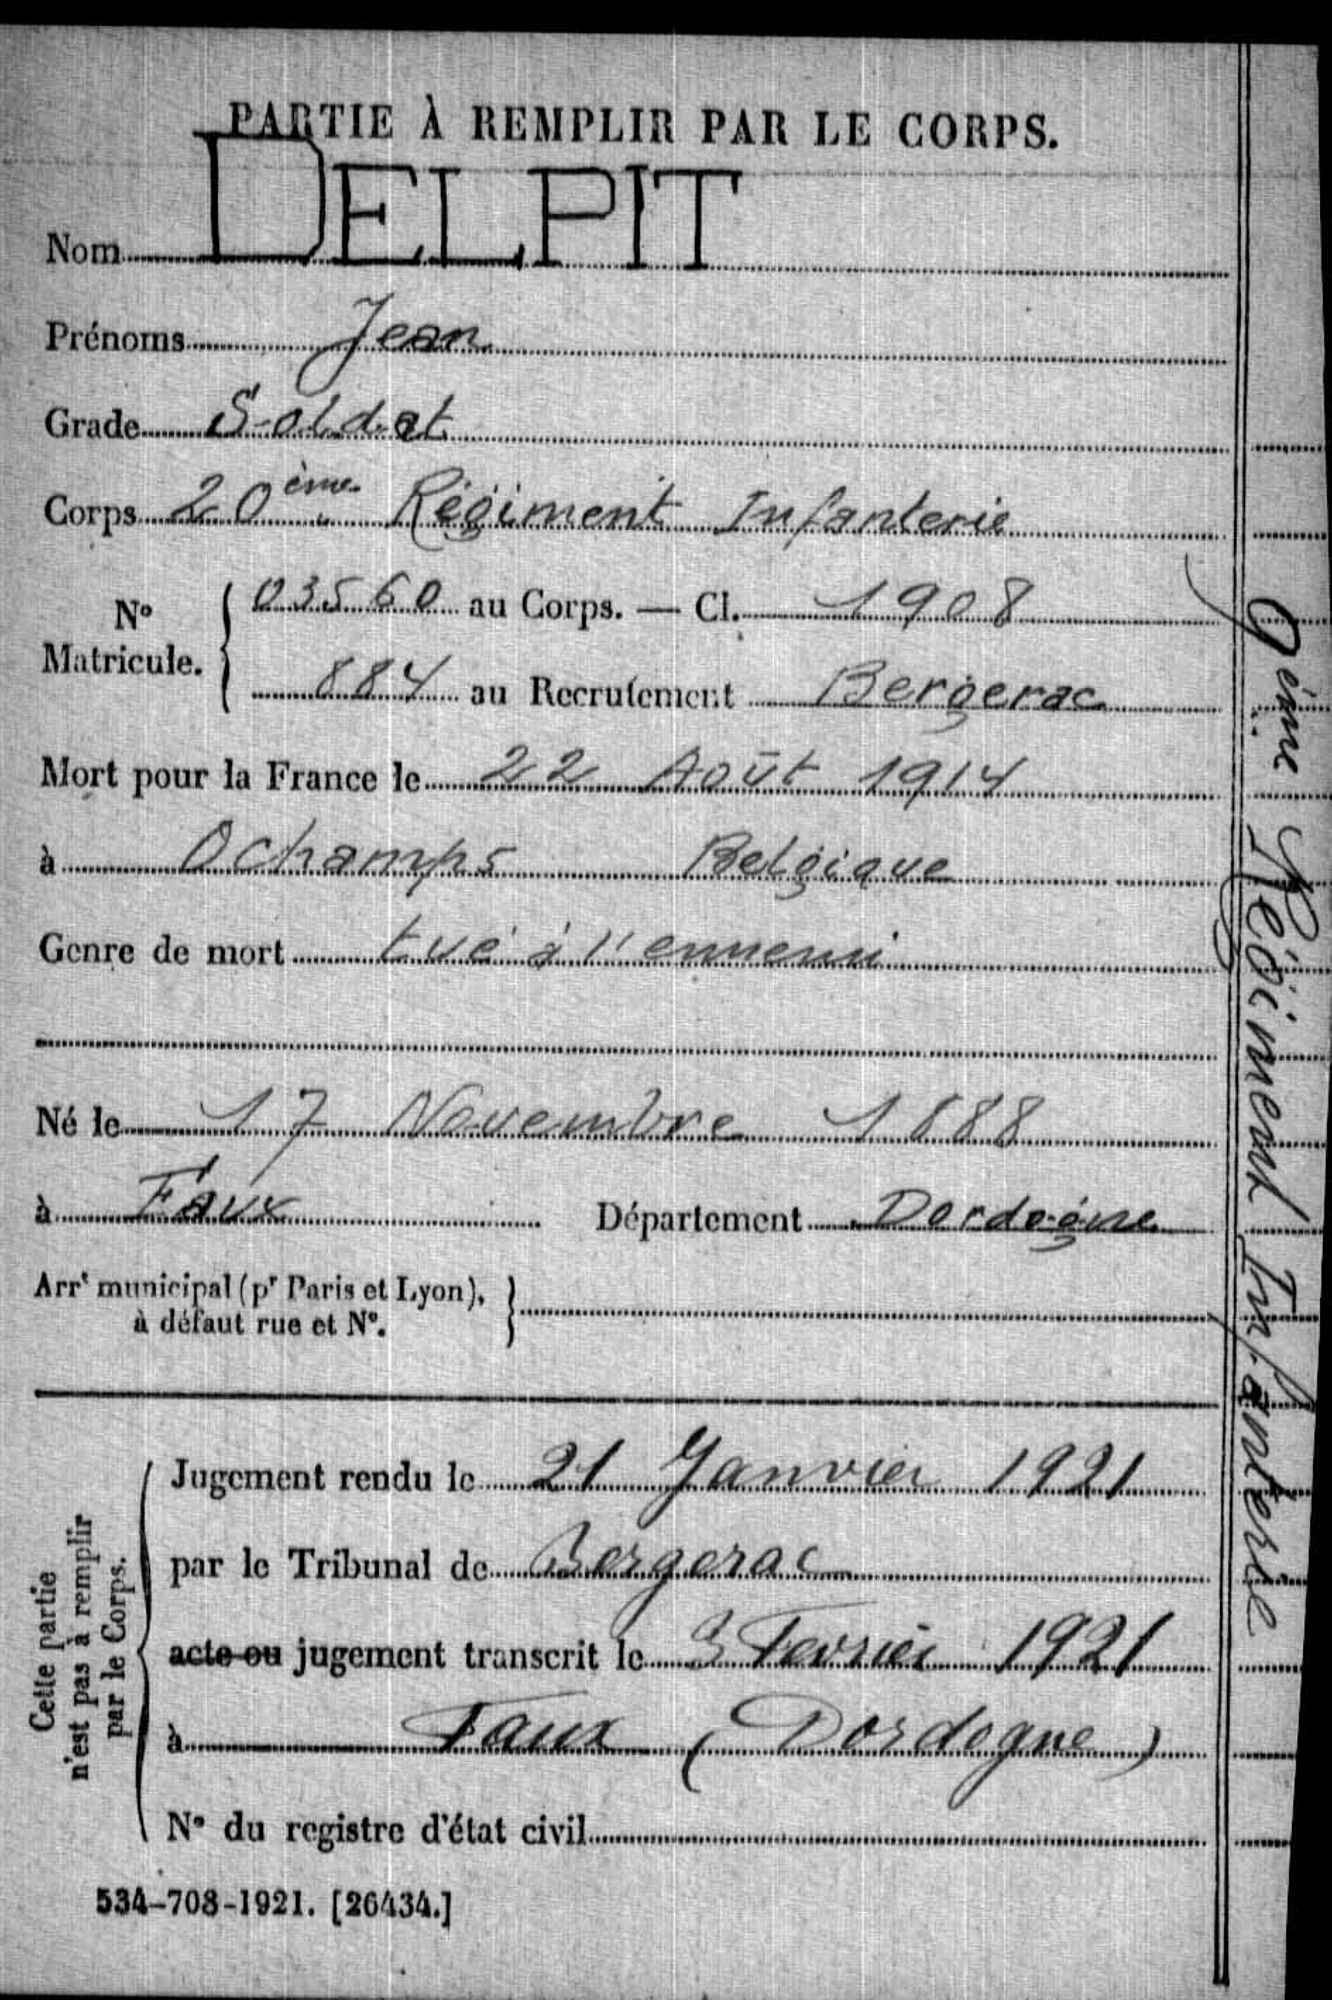 PARTIE À REMPLIR PAR LE CORPS.
Nom DELPIT
Prénoms Jean
Grade Soldat
Corps 20ème Régiment Infanterie
N° Matricule. { 03560 au Corps. — Cl. 1908
884 au Recrutement Bergerac
Mort pour la France le 22 Août 1914
à Ochamps Belgique
Genre de mort tué à l'ennemi
Né le 17 Novembre 1888
à Faux Département Dordogne
Arrt municipal (pr Paris et Lyon), }
à défaut rue et N°.
Cette partie
n'est pas à remplir
par le Corps.
Jugement rendu le 21 Janvier 1921
par le Tribunal de Bergerac
acte ou jugement transcrit le 3 Fevrier 1921
à Faux (Dordogne)
N° du registre d'état civil
534-708-1921. [26434.]
9ème Régiment Infanterie